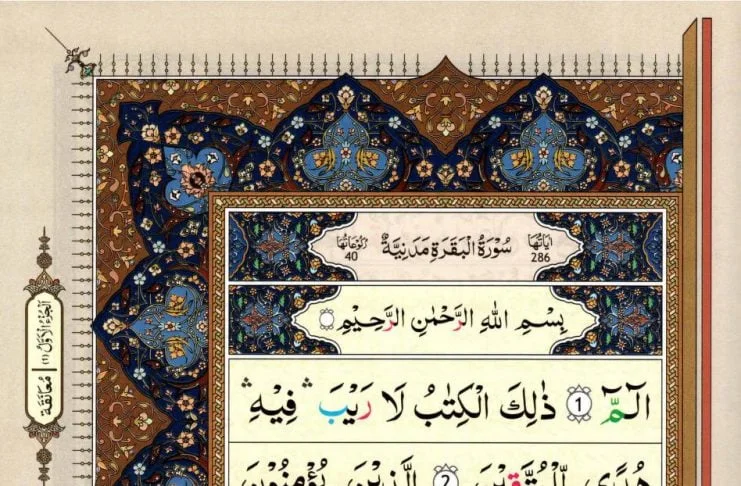 اٰيَاتُهَا 286 سُوْرَةُ الْبَقَرَةِ مَدَنِيَّةٌ رُكُوْعَاتُهَا 40
بِسْمِ اللهِ الرَّحْمٰنِ الرَّحِيْمِ
الٓمّٓ ۚ 1 ذٰلِكَ الْكِتٰبُ لَا رَيْبَ ۛ فِيْهِ ۛ
هُدًى لِّلْمُتَّقِيْنَ 2 الَّذِيْنَ يُؤْمِنُوْنَ
اَلْجُزْءُ الْاَوَّلُ (١) مُعَانَقَة